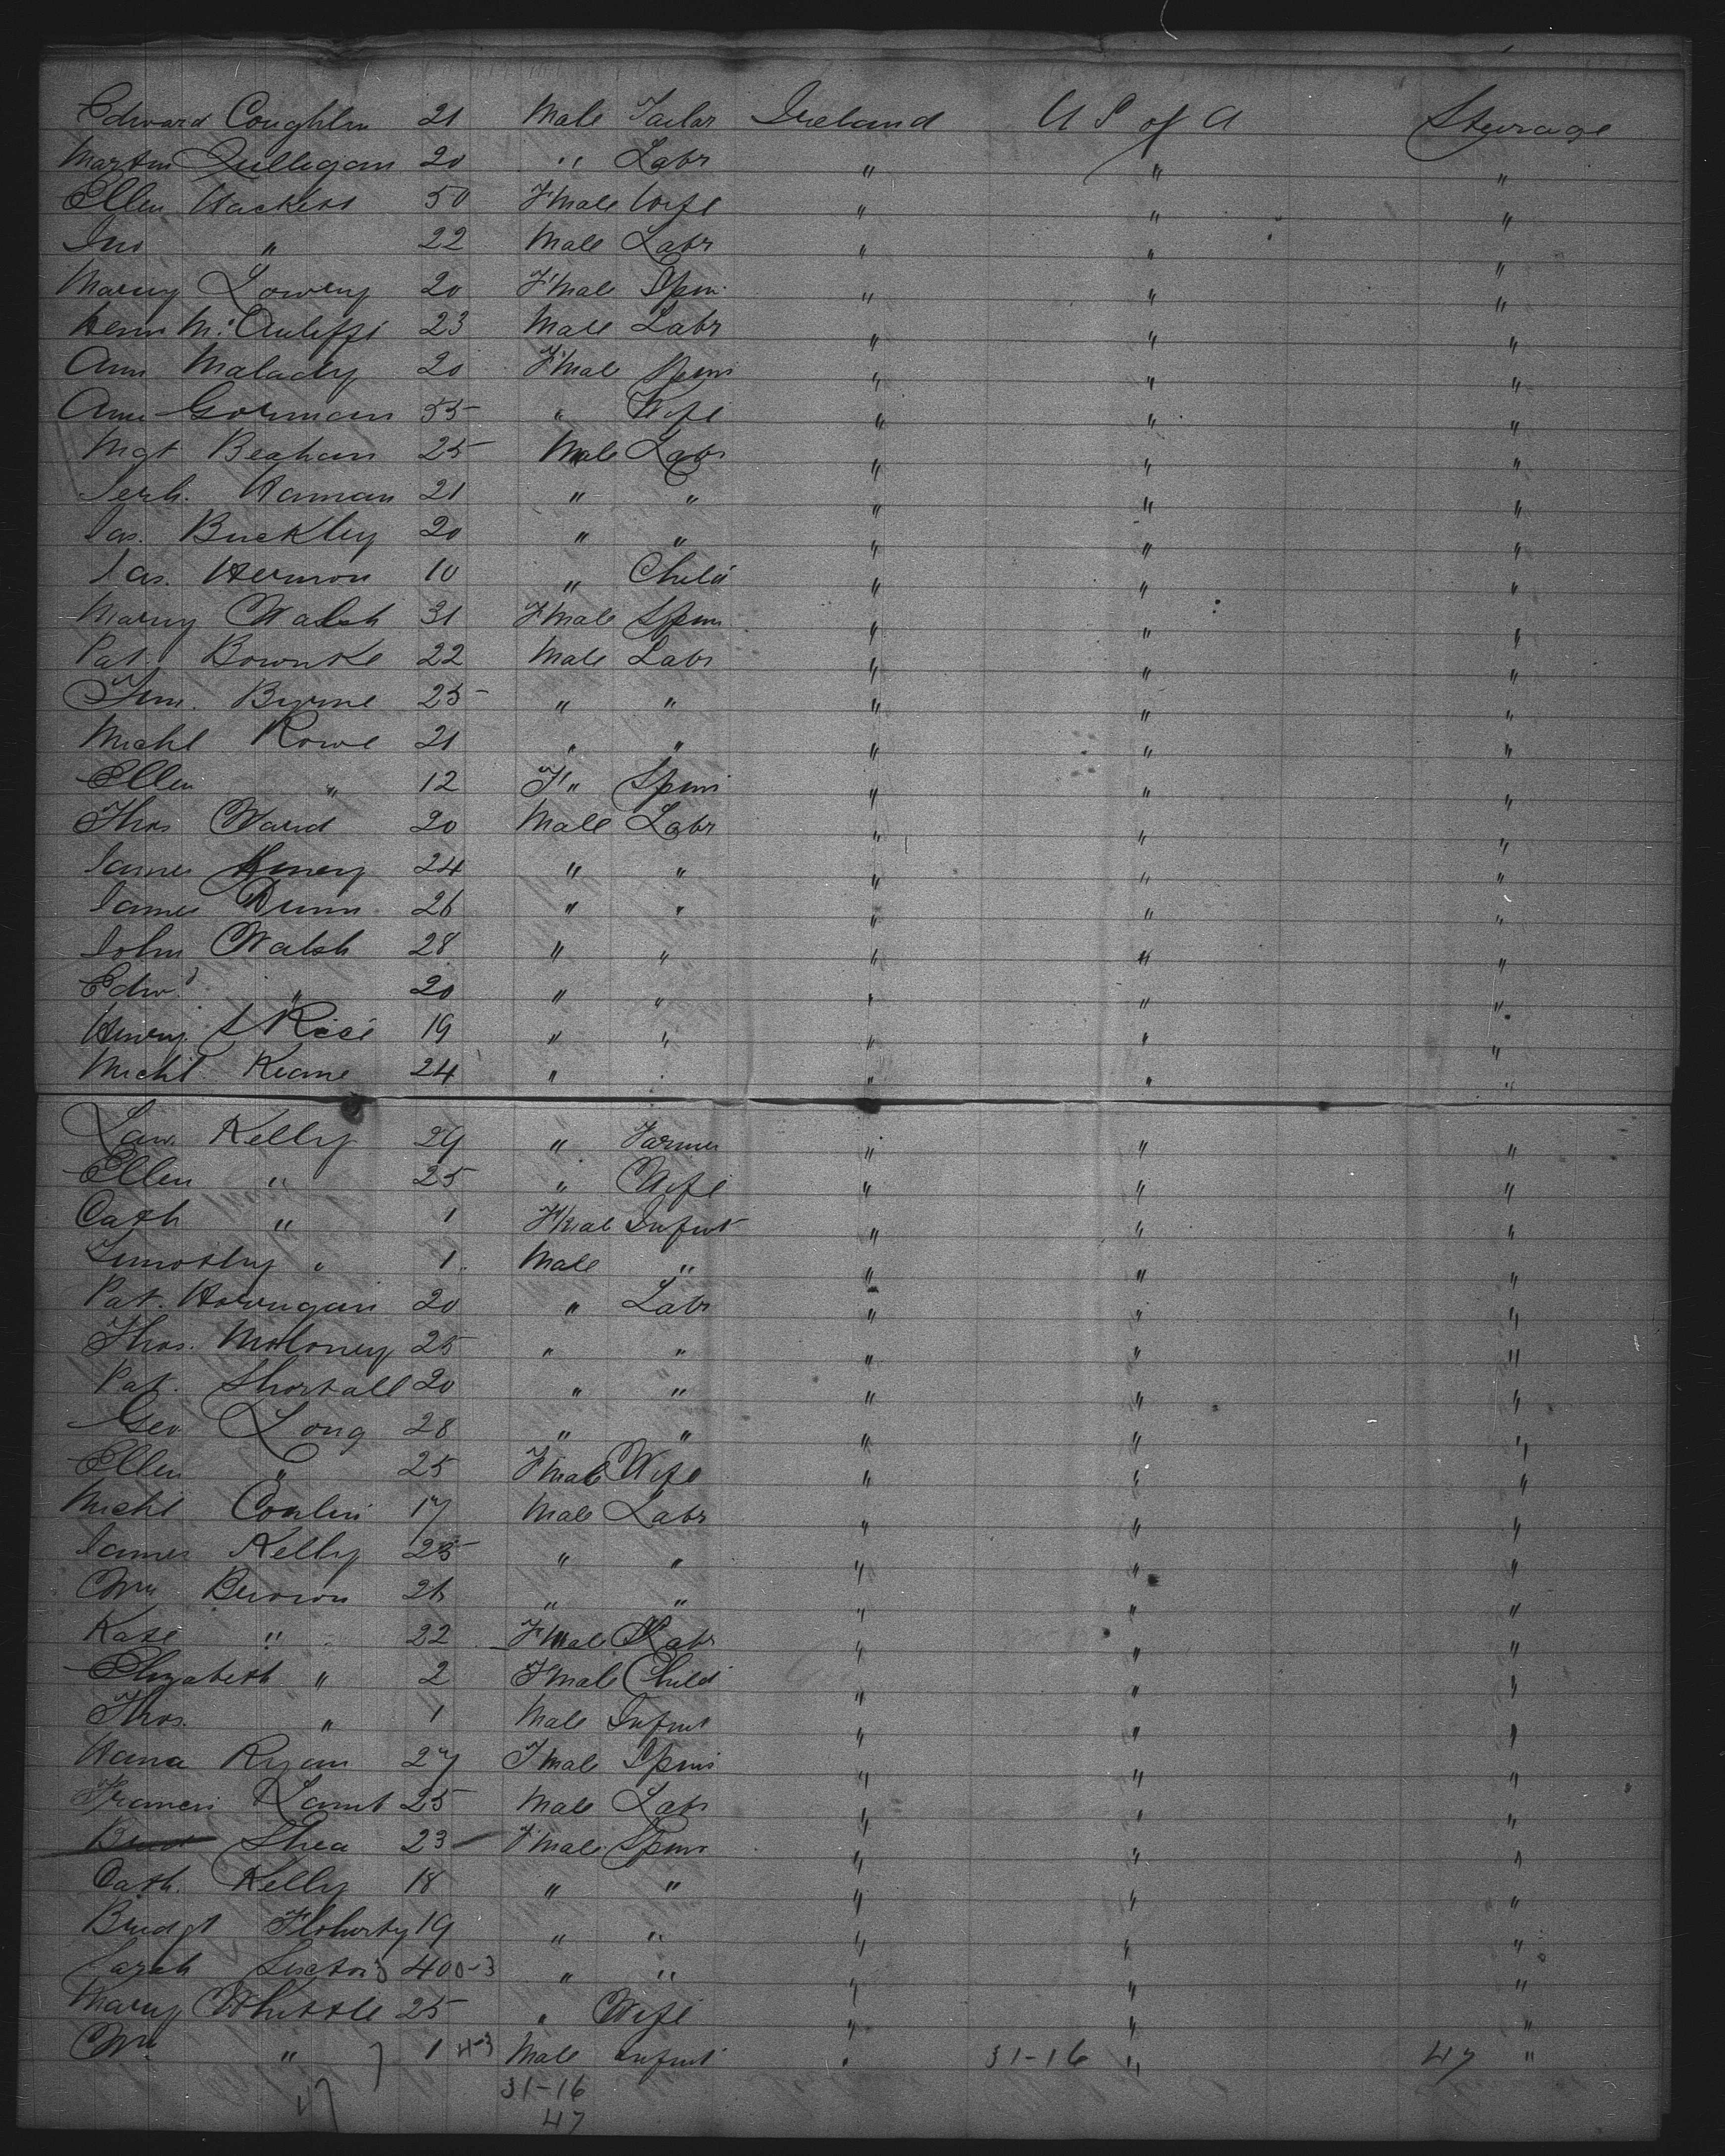 Edward Coughlin 21 Male Tailor Ireland U S of A Steerage
Martin Quilligan 20 " Labr " " "
Ellen Hackett 50 F'male Wife " " "
Jno " 22 Male Labr " " "
Mary Lowry 20 F'male Spin " " "
McAuliffe 23 Male Labr " " "
Ann Malady 20 F'male Spin " " "
Ann Gorman 55 " Wife " " "
Mgt Beahan 25 Male Labr " " "
Jerh. Hannan 21 " " " " "
Jas. Buckley 20 " " " " "
Jas. Hernon 10 " Child " " "
Mary Walsh 31 F'male Spin " " "
Pat 22 Male Labr " " "
Tim. Byrne 25 " " " " "
Michl Rowe 21 " " " " "
Ellen " 12 F" Spin " " "
Thos Ward 20 Male Labr " " "
James Henery 24 " " " " "
James Dunn 26 " " " " "
John Walsh 28 " " " " "
Edwd. " 20 " " " " "
Henry Rice 19 " " " " "
Michl Keane 24 " " " " "
Law. Kelly 29 " Farmer " " "
Ellen " 25 " Wife " " "
Cath " 1 F'male Infnt " " "
Timothy " 1 Male " " " "
Pat. Horrigan 20 " Labr " " "
Thos. Moloney 25 " " " " "
Pat. Shortall 20 " " " " "
Geo Long 28 " " " " "
Ellen " 25 F'male Wife " " "
Michl Conlin 17 Male Labr " " "
James Kelly 25 " " " " "
Wm Brown 26 " " " " "
Kate " 22 F'male Labr " " "
Elizabeth " 2 F'male Child " " "
Thos. " 1 Male Infnt " " "
Hana Ryan 27 F'male Spin " " "
Francis Lamb 25 Male Labr " " "
Shea 23 F'male Spin " " "
Cath. Kelly 18 " " " " "
Bridgt Floherty 19 " " " " "
Sarah Sexton 40 " " " " "
Mary Whittle 25 " Wife " " "
Wm " 1 4-3 Male Infnt " 31-16 " 47 "
31-16
47